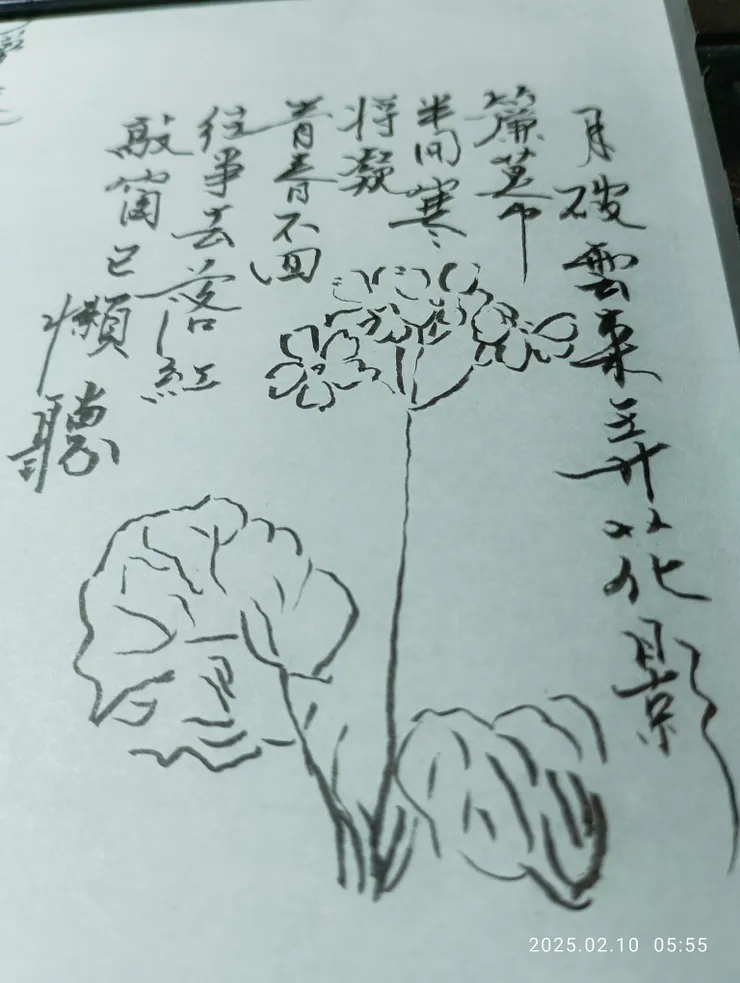 月破雲來弄花影
簾幕
半间寒
将凝
青春不回
往事去落紅
敲窗已
懶聽
2025.02.10 05:55